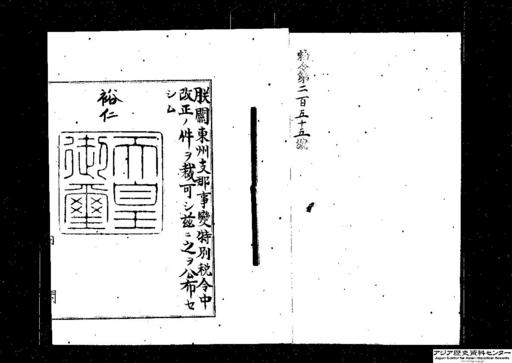 勅令第二百五十五號
朕關東州支那事變特別税令中
改正ノ件ヲ裁可シ茲ニ之ヲ公布セ
シム
裕仁
天皇
御璽
内
閣
アジア歴史資料センター
Japan Center for Asian Historical Records